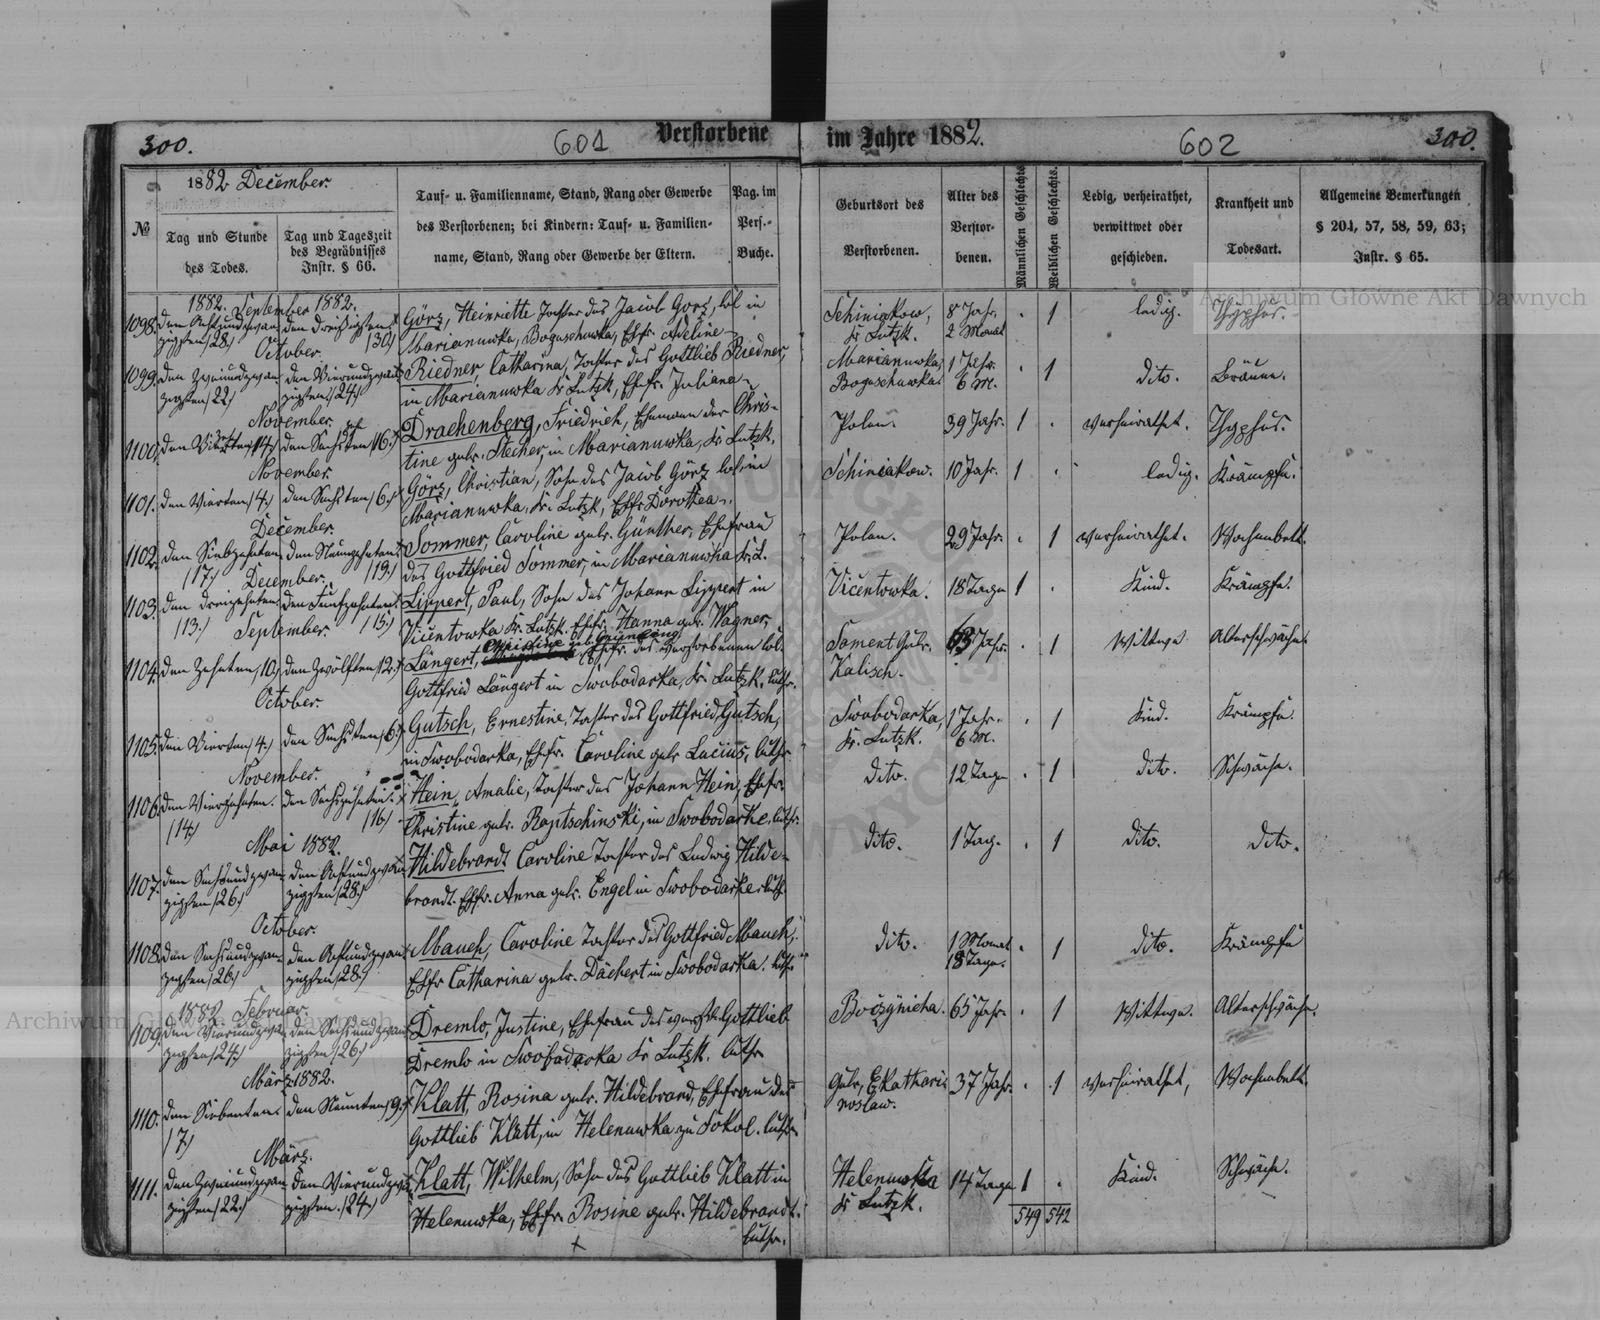 300.
601
Verstorbene
im Jahre 1882.
602
300.
№
1882 December.
Tag und Stunde
des Todes.
Tag und Tageszeit
des Begräbnisses
Instr. § 66.
Tauf- u. Familienname, Stand, Rang oder Gewerbe
des Verstorbenen; bei Kindern: Tauf- u. Familien-
name, Stand, Rang oder Gewerbe der Eltern.
Pag. im
Pers.-
Buche.
Geburtsort des
Verstorbenen.
Alter des
Verstor-
benen.
Männlichen Geschlechts.
Weiblichen Geschlechts.
Ledig, verheirathet,
verwittwet oder
geschieden.
Krankheit und
Todesart.
Allgemeine Bemerkungen
§ 204, 57, 58, 59, 63;
Instr. § 65.
1882. September 1882.
1098. den Achtundzwan- den Dreißigsten
zigsten /28./ /30./
Görz, Heinriette Tochter des Jacob Görz, in
Marianuwka, Boguschuwka, Ehfr. Adeline
Schiniakow, 8 Jahr. 1 ledig. Thyphus.
Kr. Lutzk. 2 Monat
October.
1099. den Zweiundzwan- den Vierundzwan-
zigsten /22./ zigsten /24./
Riedner, Catharina, Tochter des Gottlieb Riedner,
in Marianuwka Kr. Lutzk, Ehfr. Juliana
Marianuwka, 1 Jahr. 1 dito. Bräune.
Boguschuwka 6 M.
November.
1100. den Vierten /4./ den Sechsten /6./
Drachenberg, Friedrich, Ehemann der Chris-
tine geb. Stecher, in Marianuwka, Kr. Lutzk.
Polen. 39 Jahr. 1 verheirathet. Thyphus.
November.
1101. den Vierten /4./ den Sechsten /6./
Görz, Christian, Sohn des Jacob Görz in
Marianuwka, Kr. Lutzk, Ehfr. Dorothea
Schiniakow. 10 Jahr. 1 ledig. Krämpfe.
December.
1102. den Siebzehnten den Neunzehnten
/17./ /19./
Sommer, Caroline geb. Günther, Ehefrau
des Gottfried Sommer, in Marianuwka Kr. L.
Polen. 29 Jahr. 1 verheirathet. Wochenbett.
December.
1103. den dreizehnten den Fünfzehnten
/13./ /15./
Lippert, Paul, Sohn des Johann Lippert in
Vicentowka Kr. Lutzk. Ehfr. Hanna geb. Wagner,
Vicentowka. 18 Tage 1 Kind. Krämpfe.
September.
1104. den Zehnten /10./ den Zwölften /12./
Längert, Christine geb. Ehfr. des verstorbenen
Gottfried Längert in Swobodarka, Kr. Lutzk. luth.
Gub. Jahr. 1 Wittwe Altersschwäche
Kalisch.
October.
1105. den Vierten /4./ den Sechsten /6./
Gutsch, Ernestine, Tochter des Gottfried Gutsch,
in Swobodarka, Ehfr. Caroline geb. Lucius, luth.
Swobodarka, 1 Jahr. 1 Kind. Krämpfe.
Kr. Lutzk. 6 M.
November.
1106. den Vierzehnten. den Sechszehnten.
/14./ /16./
Hein, Amalie, Tochter des Johann Hein, Ehfr.
Christine geb. Raptschinski, in Swobodarke. luth.
dito. 12 Tage 1 dito. Schwäche.
Mai 1882.
1107. den Sechsundzwan- den Achtundzwan-
zigsten /26./ zigsten /28./
Hildebrandt Caroline Tochter des Ludwig Hilde-
brandt. Ehfr. Anna geb. Engel in Swobodarke. luth.
dito. 1 Tag. 1 dito. dito.
October.
1108. den Sechsundzwan- den Achtundzwan-
zigsten /26./ zigsten /28./
Mauch, Caroline Tochter des Gottfried Mauch,
Ehfr. Catharina geb. Dächert in Swobodarka. luth.
dito. 1 Monat 1 dito. Krämpfe
18 Tage.
1882 Februar.
1109. den Vierundzwan- den Sechsundzwan-
zigsten /24./ zigsten /26./
Dremlo, Justine, Ehefrau des verst. Gottlieb
Dremlo in Swobodarka Kr. Lutzk. luth.
65 Jahr. 1 Wittwe. Altersschwäche.
März 1882.
1110. den Siebenten. den Neunten /9./
/7./
Klatt, Rosina geb. Hildebrand, Ehefrau des
Gottlieb Klatt, in Helenuwka zu Sokol. luth.
Gub. Ekatharis 37 Jahr. 1 verheirathet, Wochenbett.
noslaw.
März.
1111. den Zweiundzwan- den Vierundzwan-
zigsten /22./ zigsten. /24./
Klatt, Wilhelm, Sohn des Gottlieb Klatt in
Helenuwka, Ehfr. Rosine geb. Hildebrandt.
luth.
Helenuwka 14 Tage 1 Kind. Schwäche.
Kr. Lutzk.
549 542
Archiwum Główne Akt Dawnych
Archiwum Główne Akt Dawnych